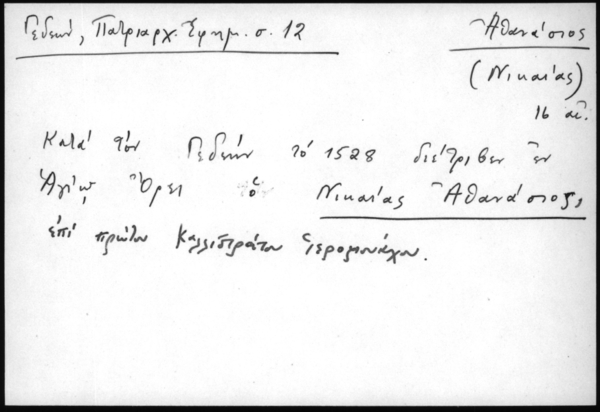 Γεδεών, Πατριαρχ. Ἐφημ. σ. 12
Ἀθανάσιος
(Νικαίας)
16 αἰ.
Κατά τόν Γεδεών τό 1528 διέτριβεν ἐν
Ἁγίῳ Ὄρει ὁ Νικαίας Ἀθανάσιος,
ἐπί πρώτου Καλλιστράτου ἱερομονάχου.